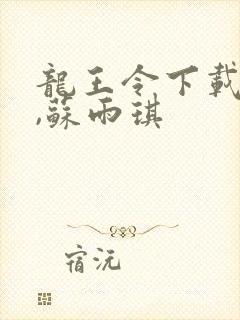 龍王令下載
,蘇雨琪
宿沅